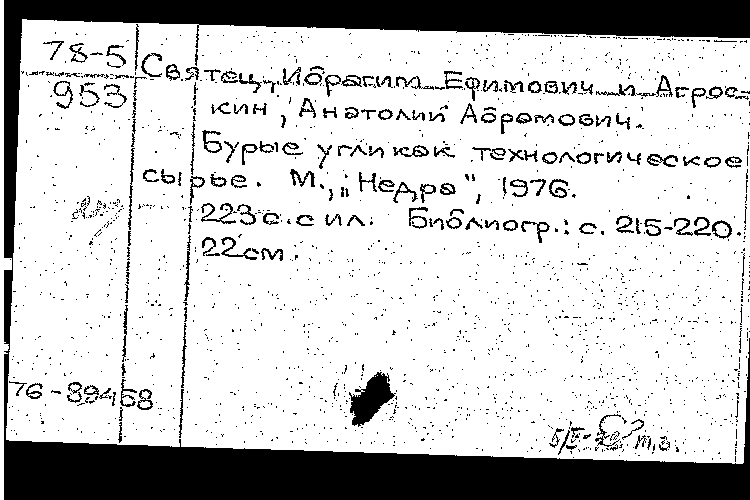 78-5
953
Святец, Ибрагим Ефимович и Агрос-
кин, Анатолий Абрамович.
Бурые угли как технологическое
сырье. М., „Недра", 1976.
223 с. с ил. Библиогр.: с. 215-220.
22 см.
76-89458